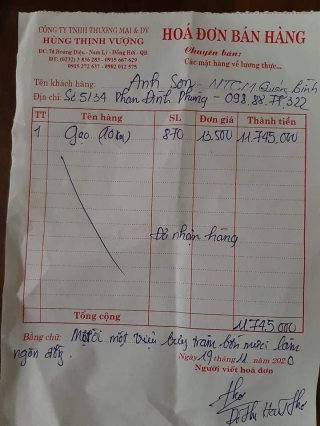 CÔNG TY TNHH THƯƠNG MẠI & DV
HÙNG THỊNH VƯỢNG
ĐC: 74 Hoàng Diệu - Nam Lý - Đồng Hới - QB
ĐT: (0232) 3 836 287 - 0915 667 429
0915 272 637 - 0982 012 575
HOÁ ĐƠN BÁN HÀNG
Chuyên bán:
Các mặt hàng về lương thực...
Tên khách hàng: Anh Sơn - NTGM Quảng Bình
Địa chỉ: Số 5134 Phan Đình Phùng - 098.88.77.322
TT Tên hàng SL Đơn giá Thành tiền
1 gạo (10kg) 870 13.500 11.745.000
Đã nhận hàng
Tổng cộng 11.745.000
Bằng chữ: Mười một triệu bảy trăm bốn mươi lăm
ngàn đồng.
Ngày 19 tháng 11 năm 2020
Người viết hoá đơn
Thơ